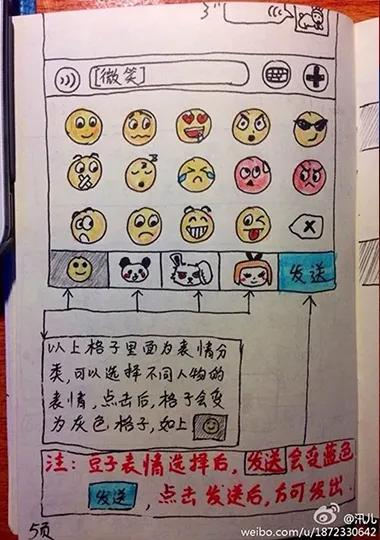 [微笑]
发送
以上格子里面为表情分
类,可以选择不同人物的
表情,点击后,格子会变
为灰色格子,如上
注: 豆子表情选择后, 发送会变蓝色
发送, 点击发送后,方可发出.
5页
@汛儿
weibo.com/u/1872330642